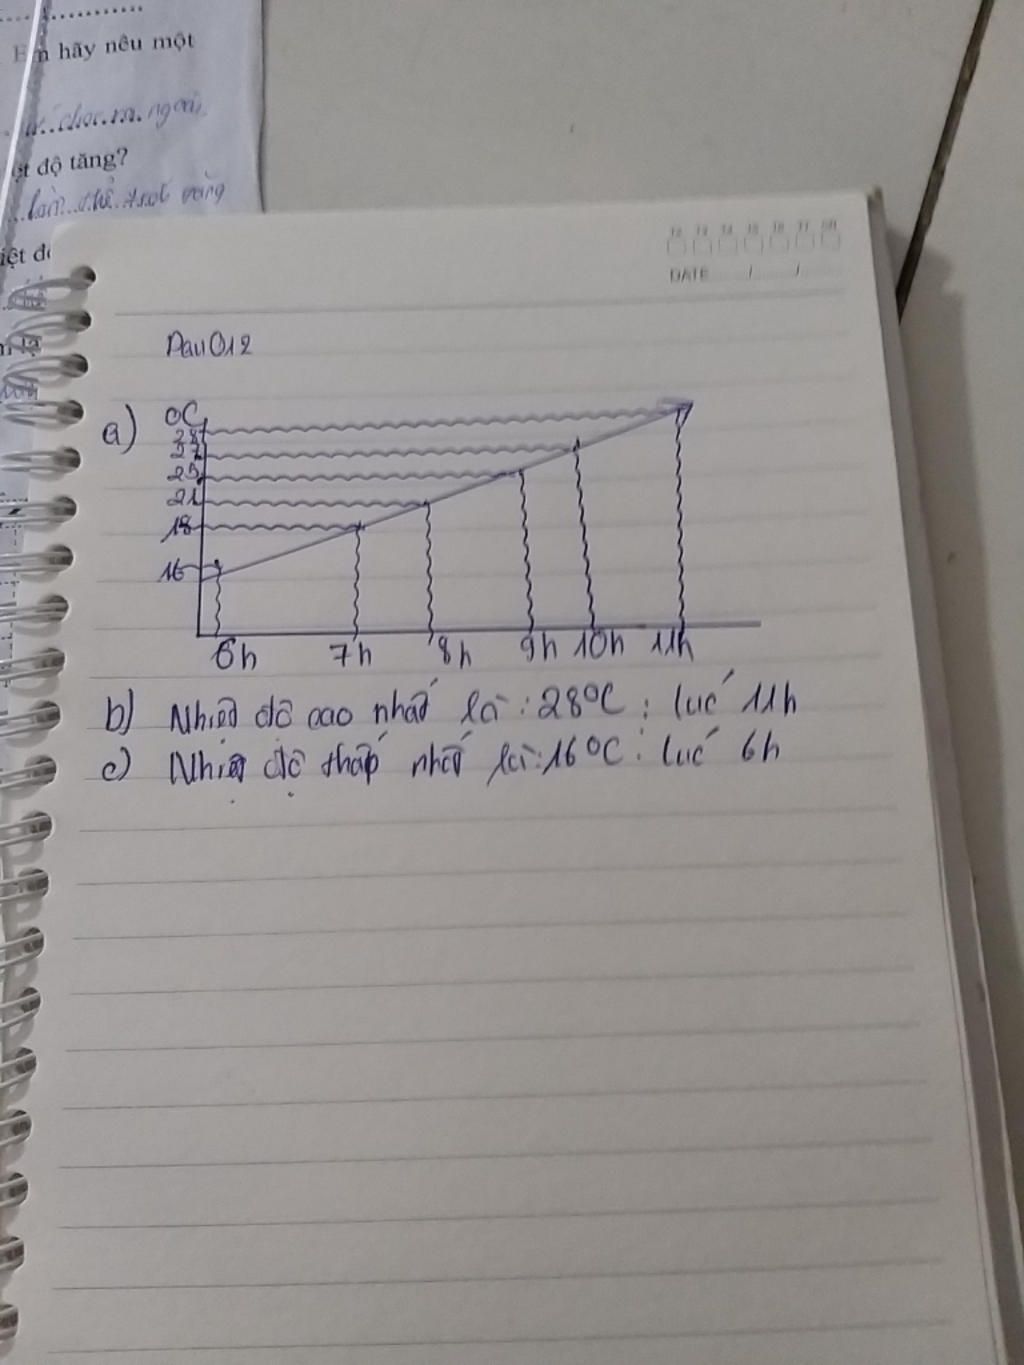 Em hãy nêu một
ngoài
ệt độ tăng?
làm
iệt đ
DATE / /
a)
OC
28
27
25
21
18
16
6h 7h 8h 9h 10h 11h
b) Nhiệt độ cao nhất là : 28°C : lúc 11h
c) Nhiệt độ thấp nhất là : 16°C : lúc 6h